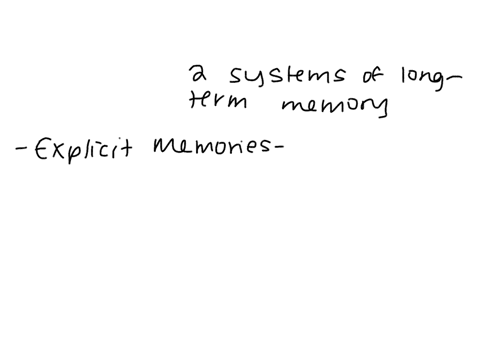 2 systems of long-
term memory
- Explicit memories -